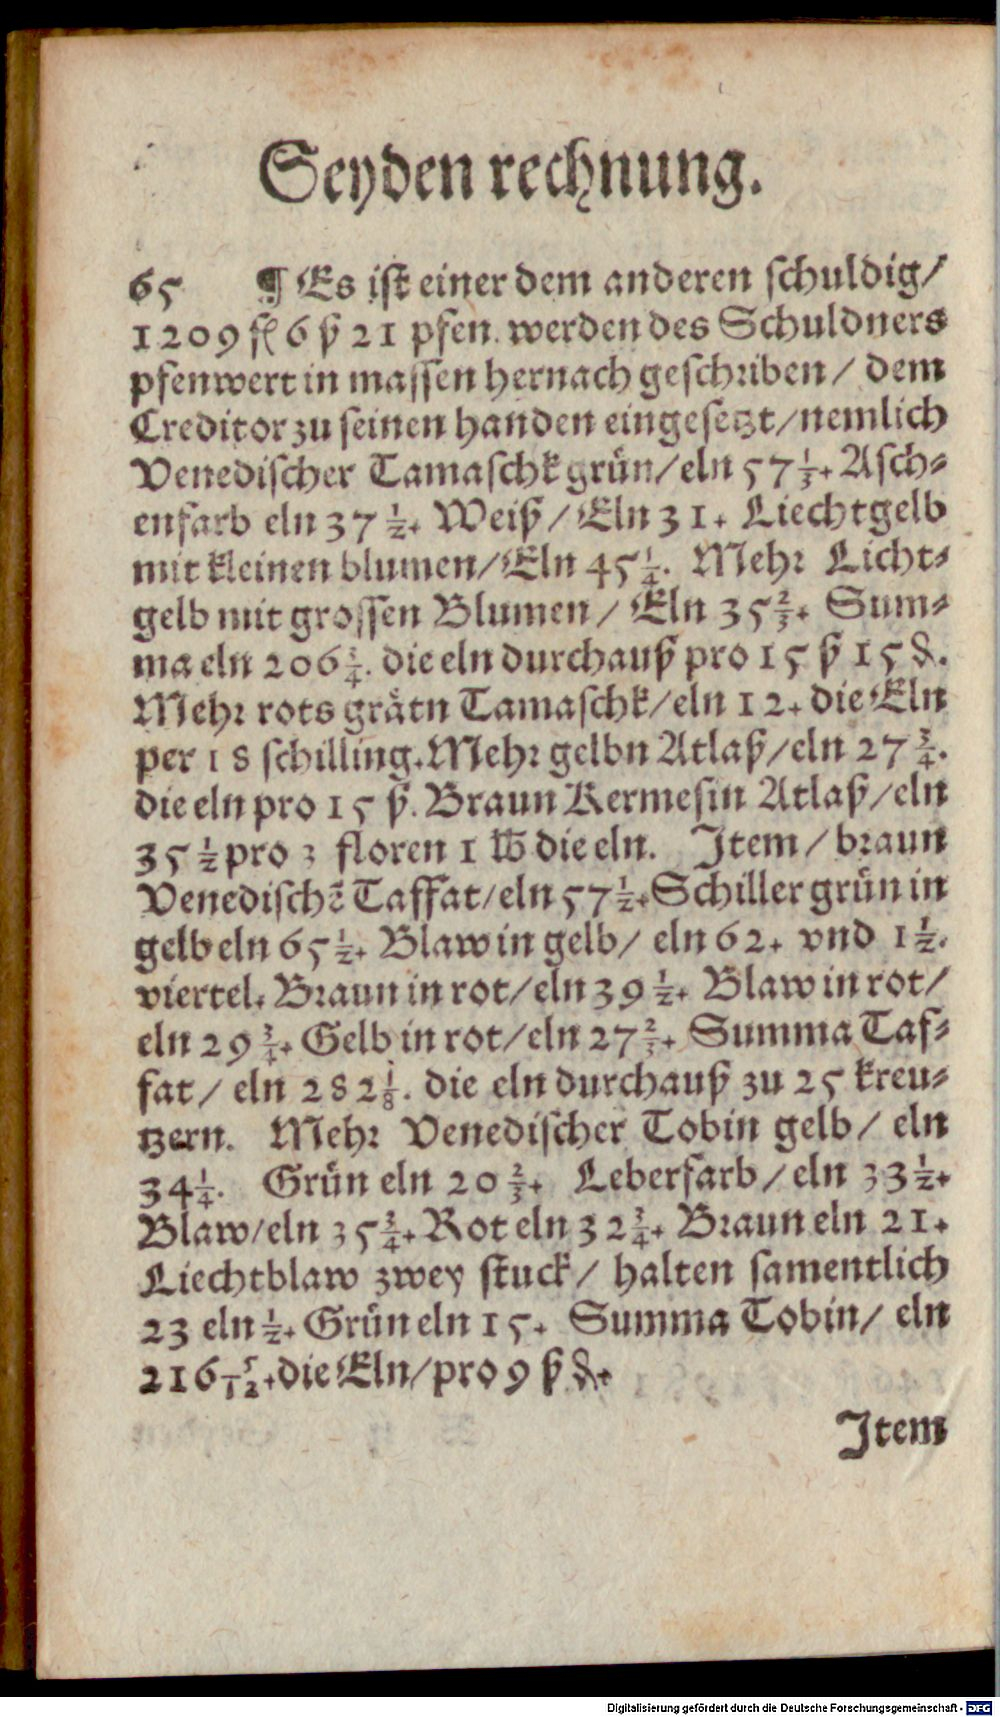 Seyden rechnung.
65 ¶ Es ist einer dem anderen schuldig/
1209 fl 6 ß 21 pfen. werden des Schuldners
pfenwert in massen hernach geschriben/ dem
Creditor zu seinen handen eingesetzt/nemlich
Venedischer Tamaschk grün/eln 57 1/3. Asch-
enfarb eln 37 1/2. Weiß/ Eln 31. Liechtgelb
mit kleinen blumen/Eln 45 1/4. Mehr Licht-
gelb mit grossen Blumen/ Eln 35 2/3. Sum-
ma eln 206 3/4. die eln durchauß pro 15 ß 15 ₰.
Mehr rots grätn Tamaschk/eln 12. die Eln
per 18 schilling. Mehr gelbn Atlaß/eln 27 3/4.
die eln pro 15 ß. Braun Kermesin Atlaß/eln
35 1/2 pro 3 floren 1 ℔ die eln. Item/ braun
Venedischẽ Taffat/eln 57 1/2. Schiller grün in
gelb eln 65 1/2. Blaw in gelb/ eln 62. vnd 1 1/2.
viertel. Braun in rot/eln 39 1/2. Blaw in rot/
eln 29 3/4. Gelb in rot/eln 27 2/3. Summa Taf-
fat/ eln 282 1/8. die eln durchauß zu 25 kreu-
tzern. Mehr Venedischer Tobin gelb/ eln
34 1/4. Grün eln 20 2/3. Leberfarb/eln 33 1/2.
Blaw/eln 35 3/4. Rot eln 32 3/4. Braun eln 21.
Liechtblaw zwey stuck/ halten samentlich
23 eln 1/2. Grün eln 15. Summa Tobin/ eln
216 5/12. die Eln/pro 9 ß ₰.
Item
Digitalisierung gefördert durch die Deutsche Forschungsgemeinschaft - DFG